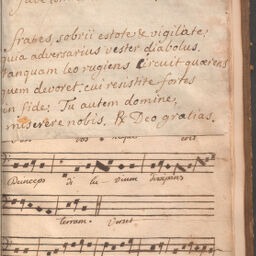 Frates, sobrii estote & vigilate;
quia adversarius vester diabolus,
tanquam leo rugiens circuit quærens
quem devoret. cui resistite fortes
in fide; Tu autem domine,
miserere nobis. ℟ Deo gratias.
Deinceps di lu vium
terram. Verset.